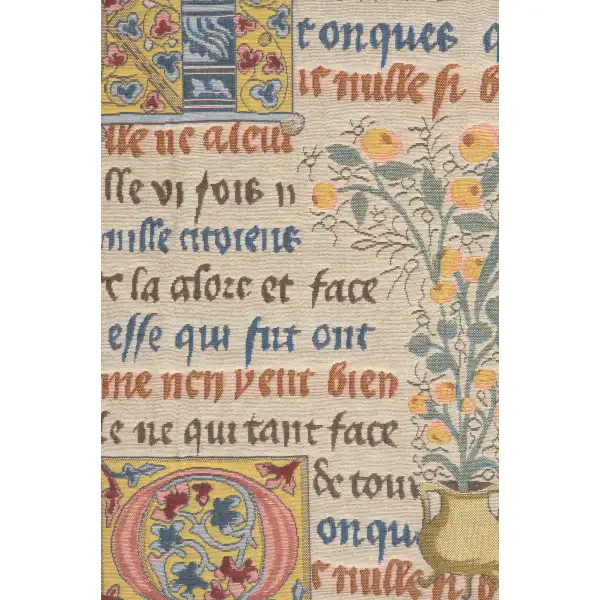 tonques q
ur nulle si b
lle ne aleur
lle vi fois n
mille citoiens
e la alore et face
esse qui fut ont
me nen veut bien
le ne qui tant face
de tour
onqu
r nulle si b